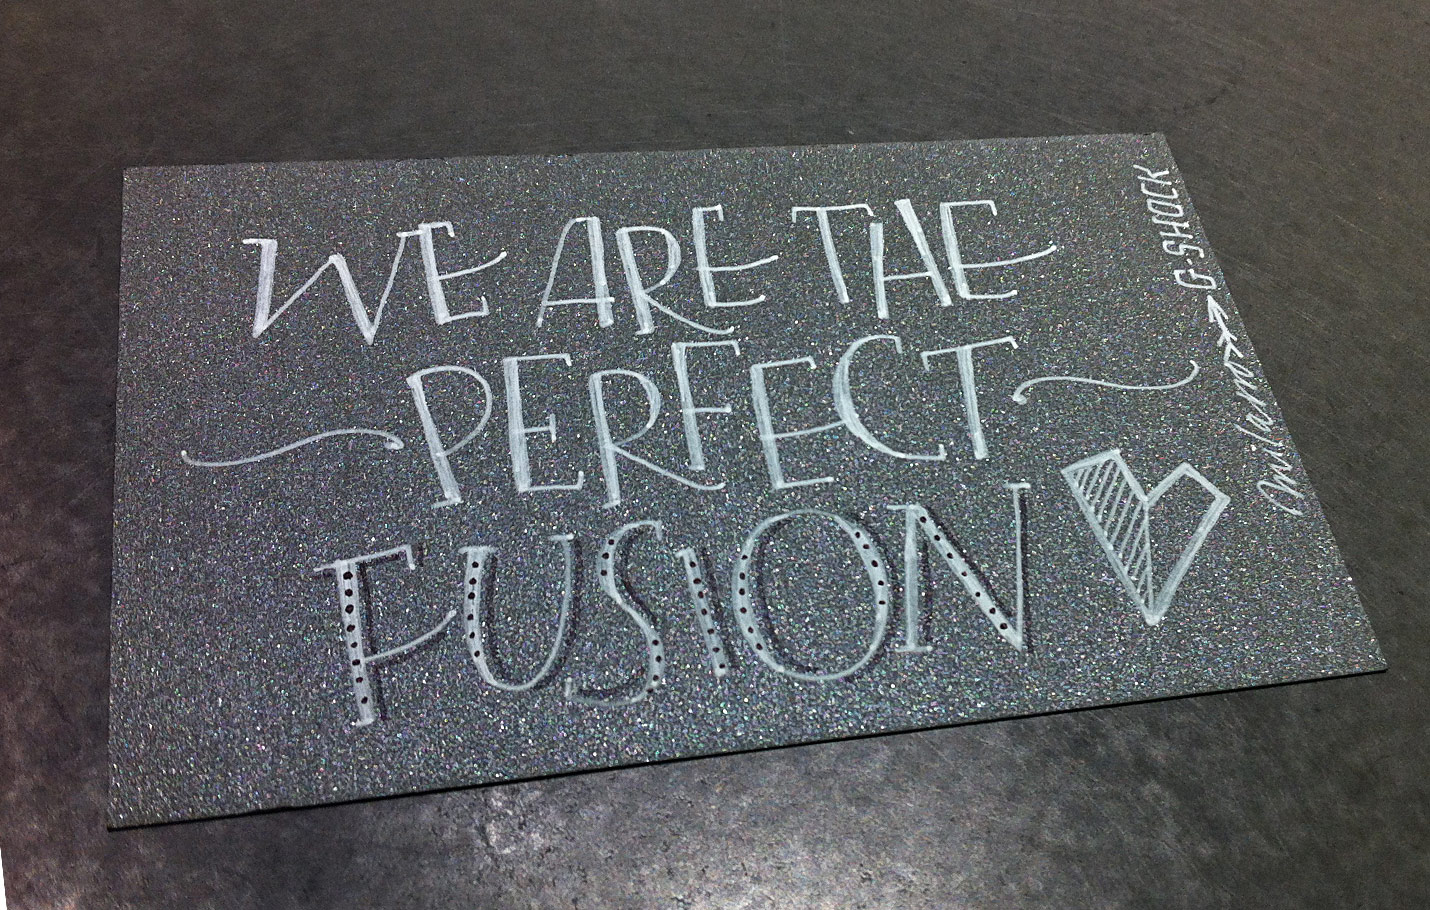 WE ARE THE
PERFECT
FUSION
milam
G-SHOCK